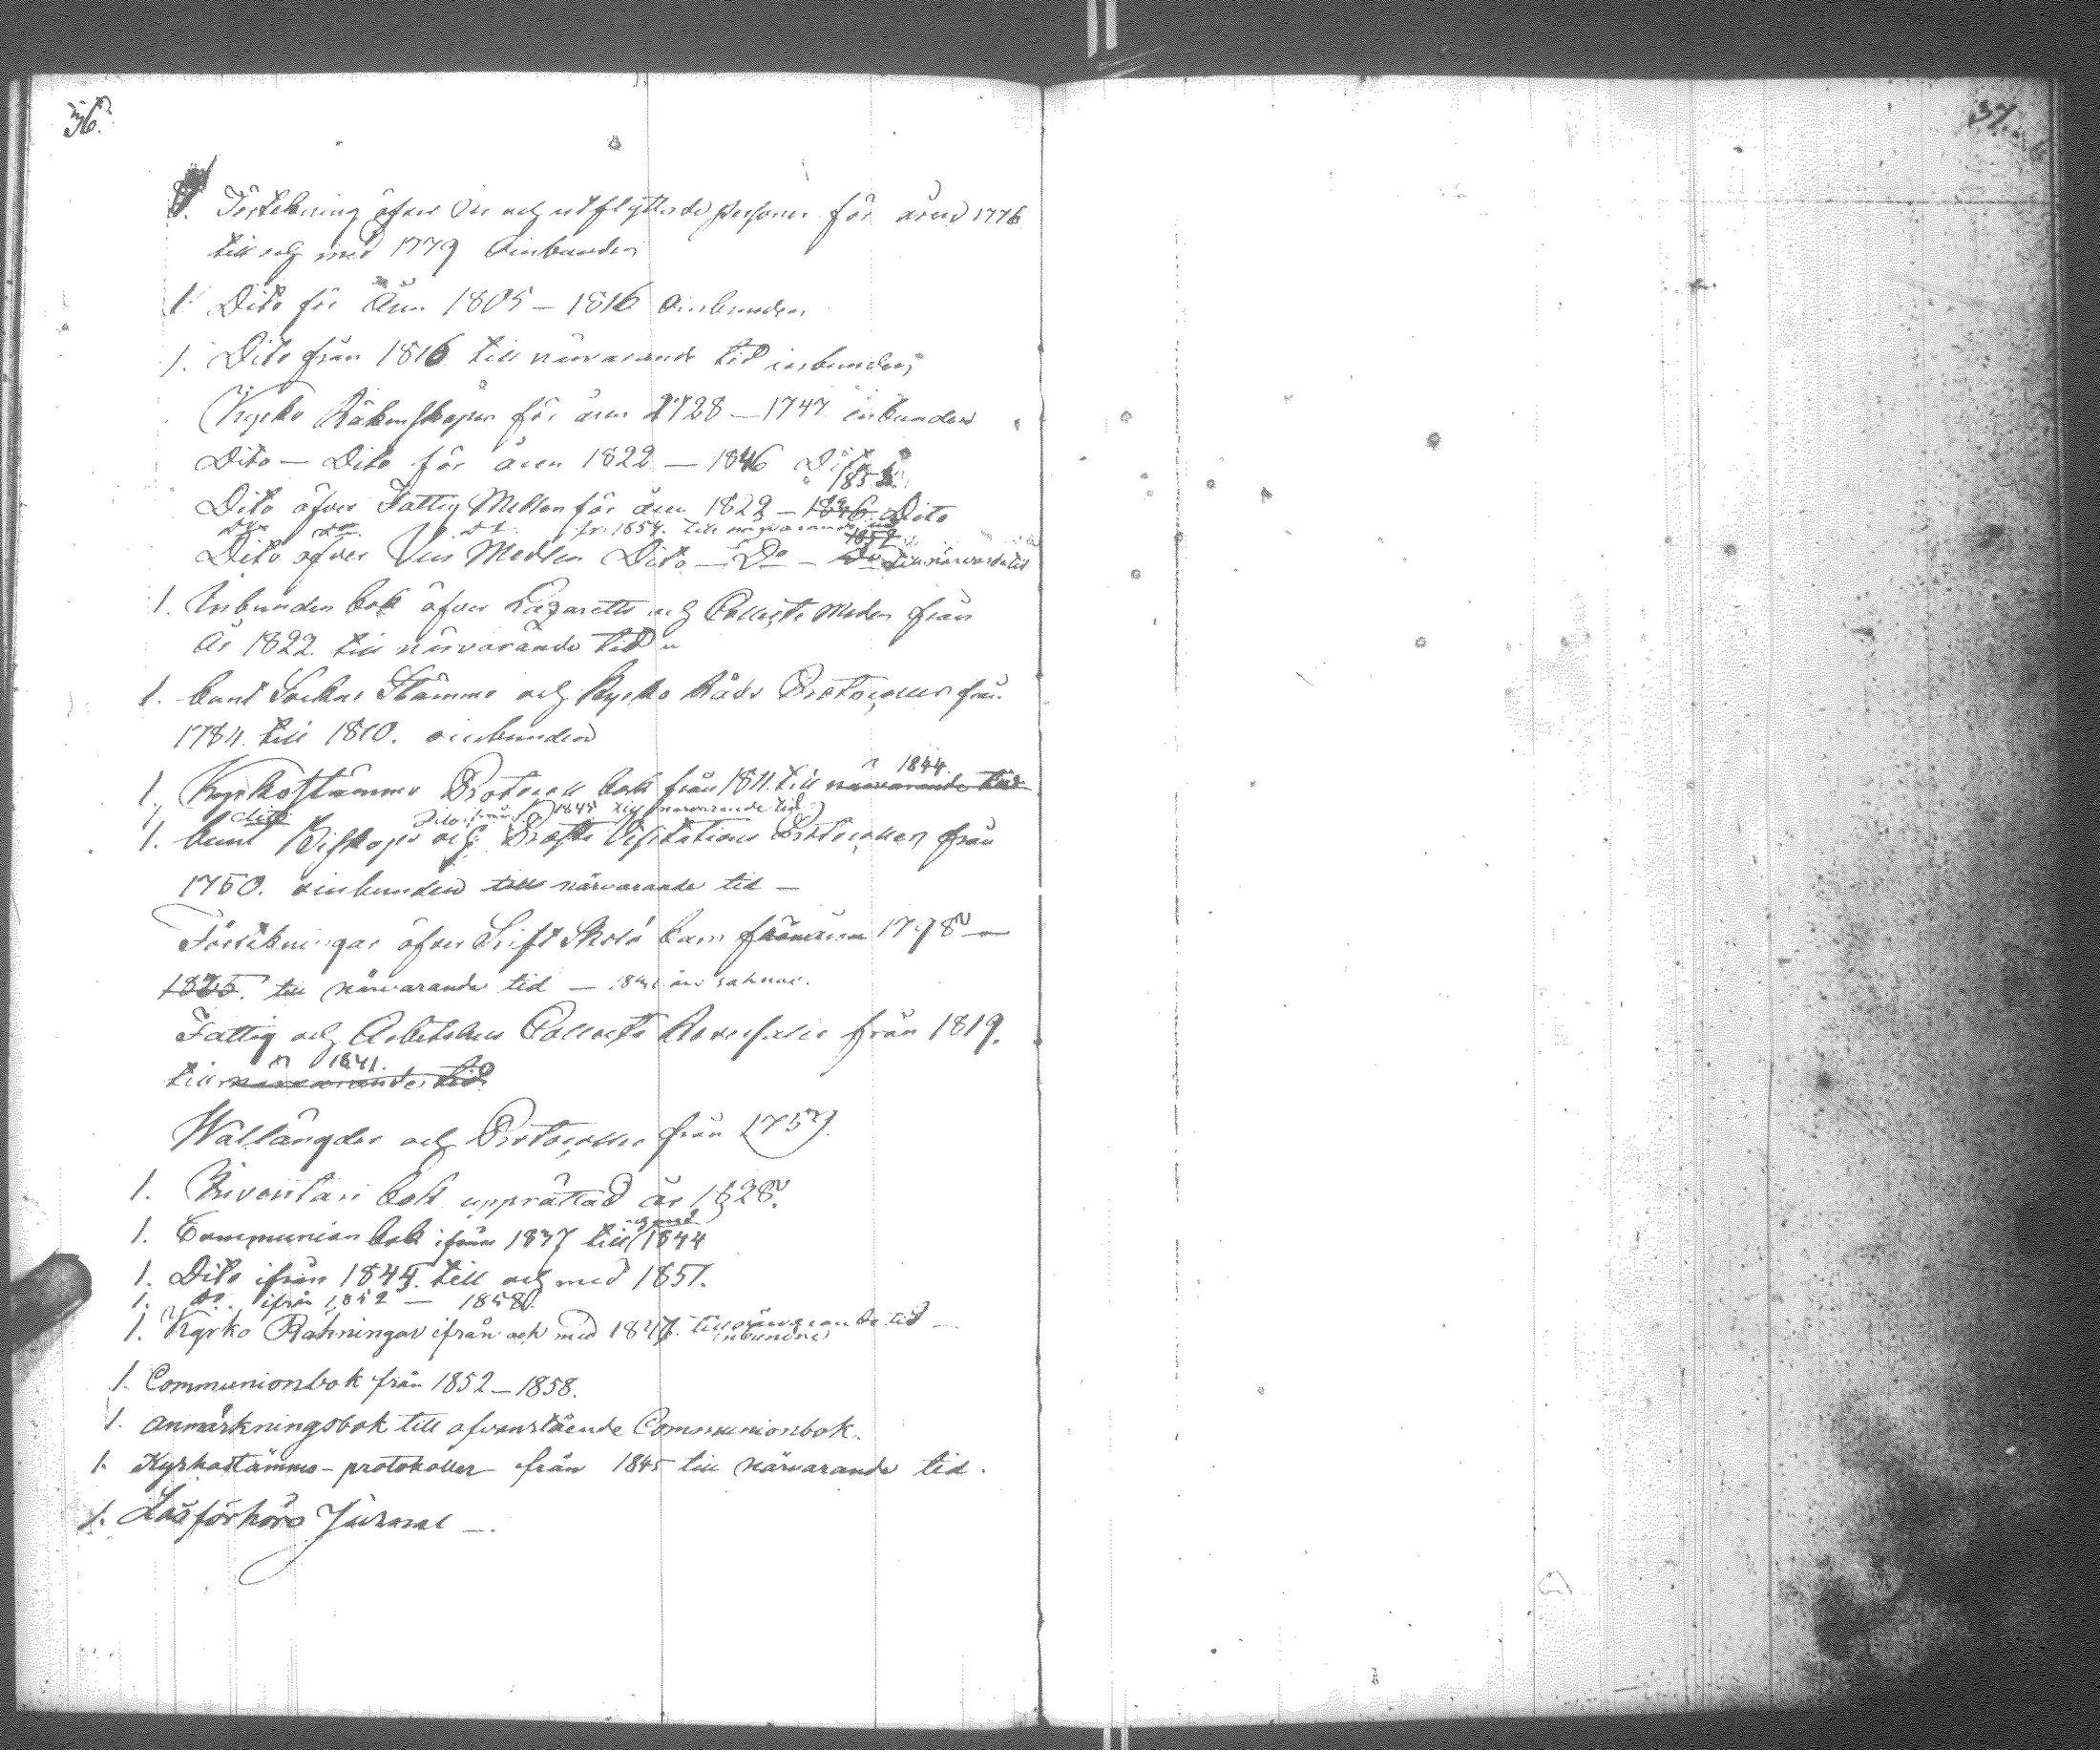 36.
37.
1. Förtekning öfver In och utflyttade personer för åren 1776
till och med 1779 oinbunden
1. Dito för Åren 1805 – 1816 oinbunden
1. Dito från 1816 till närvarande tid inbunden
Kyrko Räkenskaper för åren 1728 – 1747 inbunden
Dito – Dito för åren 1822 – 1846 Dito
1853
Dito öfver Fattig Medlen för åren 1822 – 1846 Dito
do do fr. 1854. till närvarande tid
1852
Dito öfver Medlen Dito – Do – Do till närvarande tid
1. Inbunden bok öfver Lazaretts och Collecte Medlen från
År 1822 till närvarande tid
1. bunt Sockne Stämmo och Kyrko Råds Protocoller från
1784 till 1810. oinbunden
1844.
1. Kyrkostämmo Protocolls bok från 1811 till närvarande tid
1. dito Dito från 1845 till närvarande tid
1. bunt Biskops och Prosts Visitations Protocoller från
1750. oinbunden till närvarande tid –
Förtekningar öfver Skrift Skole barn från åren 1798 –
1825. till närvarande tid – saknas.
Fattig och Arbetshus Collects Reversaler från 1819.
1841.
till närvarande tid
Wallängder och Protocoller från 1757.
1. Inventari bok upprättad år 1828.
och med
1. Communion bok ifrån 1837 till 1844
1. Dito ifrån 1845. till och med 1851.
1. do. ifrån 1852 – 1858.
1. Kyrko Räkningar ifrån och med 1847. till närvarande tid –
inbundne
1. Communionbok från 1852 – 1858.
1. Anmärkningsbok till ofvanstående Communionbok.
1. Kyrkostämmo-protokoller från 1845 till närvarande tid.
1. Läsförhörs Jurnal –.